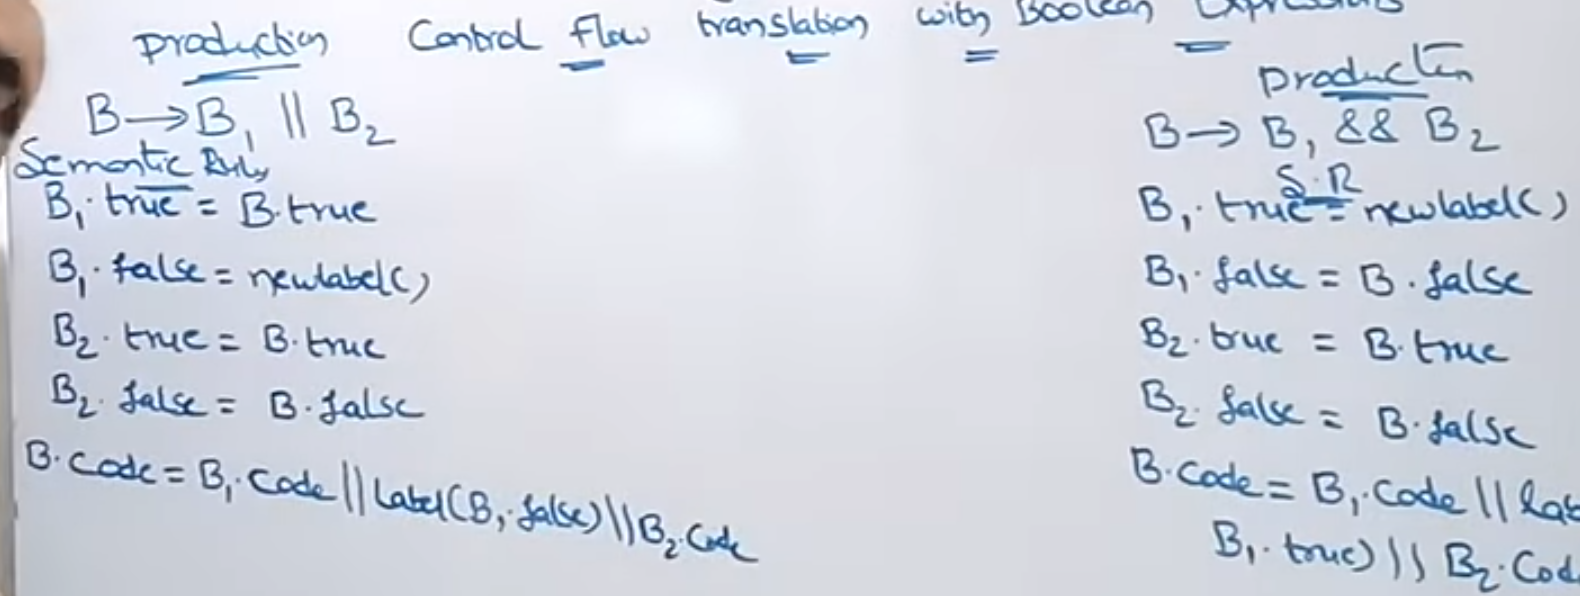 Production Control Flow translation with Boolean Expressions
B → B₁ || B₂
Semantic Rules
B₁.true = B.true
B₁.false = newlabel()
B₂.true = B.true
B₂.false = B.false
B.code = B₁.code || label(B₁.false) || B₂.code
Production
B → B₁ && B₂
S.R
B₁.true = newlabel()
B₁.false = B.false
B₂.true = B.true
B₂.false = B.false
B.code = B₁.code || lab
B₁.true) || B₂.Cod